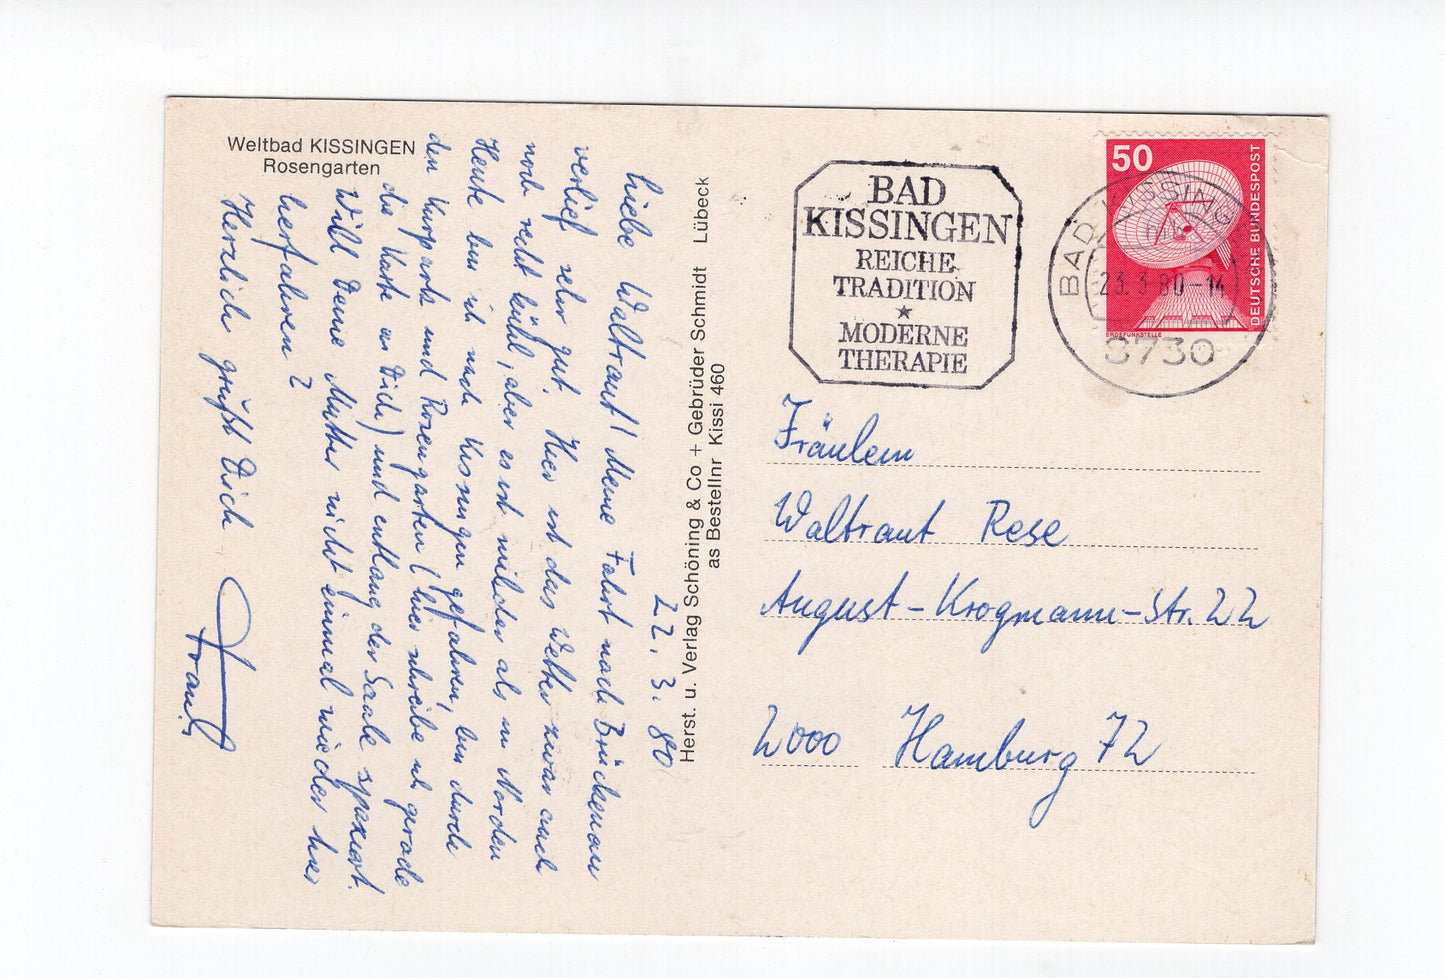 Weltbad KISSINGEN
Rosengarten
22.3.80
Liebe Waltraut! Meine Fahrt nach Brückenau
verlief sehr gut. Hier ist das Wetter zwar auch
noch recht kühl, aber es ist milder als im Norden
Heute bin ich nach Kissingen gefahren, bin durch
den Kurpark und Rosengarten (hier schreibe ich gerade
die Karte an Dich) und entlang der Saale spaziert.
Will Deine Mutter nicht einmal wieder hier
herfahren?
Herzlich grüßt Dich
Herst. u. Verlag Schöning & Co + Gebrüder Schmidt Lübeck
as Bestellnr Kissi 460
BAD
KISSINGEN
REICHE
TRADITION
★
MODERNE
THERAPIE
BAD KISSINGEN
23.3.80-14
8730
50
DEUTSCHE BUNDESPOST
ERDEFUNKSTELLE
Fräulein
Waltraut Rese
August-Krogmann-Str. 22
2000 Hamburg 72